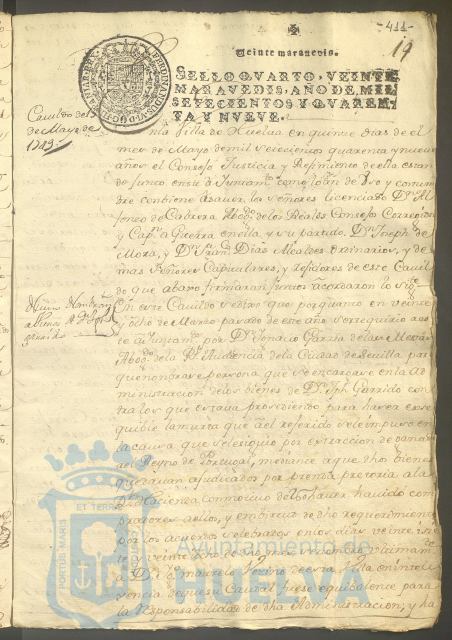 -411-
19
Veinte maravedis.
SELLO QVARTO, VEINTE
MARAVEDIS, AÑO DE MIL
SETECIENTOS Y QVAREN-
TA Y NVEVE.
Cavildo de 15
de Mayo de
1749
En la Villa de Huelva en quinze dias de el
mes de Mayo de mil setecientos quarenta y nueve
años el Consejo Justicia y Reximiento de ella estan
do junto en su Ayuntam.to como lo an de uso y costum
bre combiene a saver, los señores Licenciado Dn Al
fonso de Cabrera Abog.do de los Reales Consejos Correxidor
y Cap.n a Guerra en ella, y su partido, Dn Joseph de
Mora, y Dn Fran.co Dias Alcaldes ordinarios, y de
mas Señores Capitulares, y rexidores de este Cavil
do que abaxo firmaran juntos acordaron lo sig.te
En este Cavildo se dixo que por quanto en veinte
y ocho de Marzo pasado de este año se requirio a es
te Ayuntam.to por Dn Ignacio Garzia de las
Abog.do de la Rl Audiencia de la Ciudad de Sevilla para
que nombrase persona que se encargase en la Ad
ministracion de los bienes de Dn Jph Garrido con
tra los que estava prosediendo para hazer exse
quible la multa que a el referido se le impuso en
la causa que se le siguio por extraccion de ganado
a el Reyno de Portugal, mediante a que dhos bienes
estavan adjudicados por prenda pretoria a la
Rl Hazienda con motivo de no haver havido com
pradores a ellos, y en virtud de dho requerimiento
por los acuerdos celebrados en los dias veinte y siete
y veinte y ocho de dho mes se nombro
a D. Marcelo Vezino de esta Villa en inteli
gencia de que su Caudal fuese equibalente para
la responsabilidad de dha Administracion, y ha
ET TERRAE
PORTUS MARIS
Ayuntamiento de
HUELVA